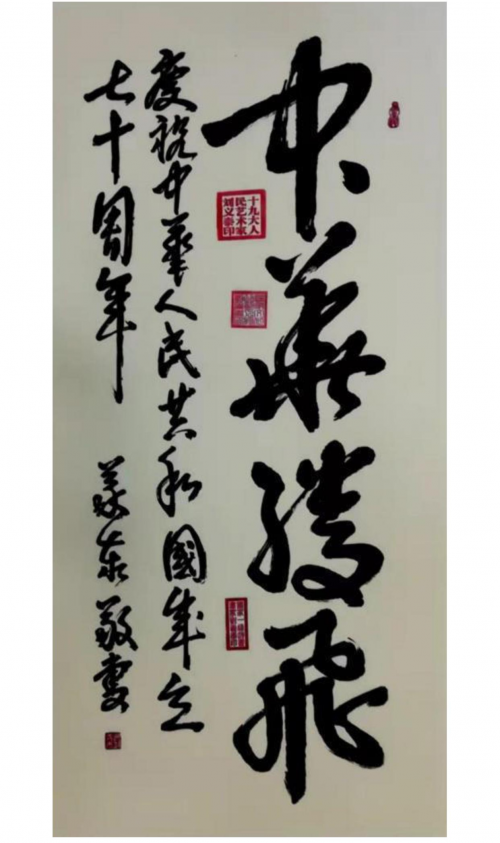 中華騰飛
慶祝中華人民共和國成立
七十周年
義泰敬書
十九大人
民艺术家
刘义泰印